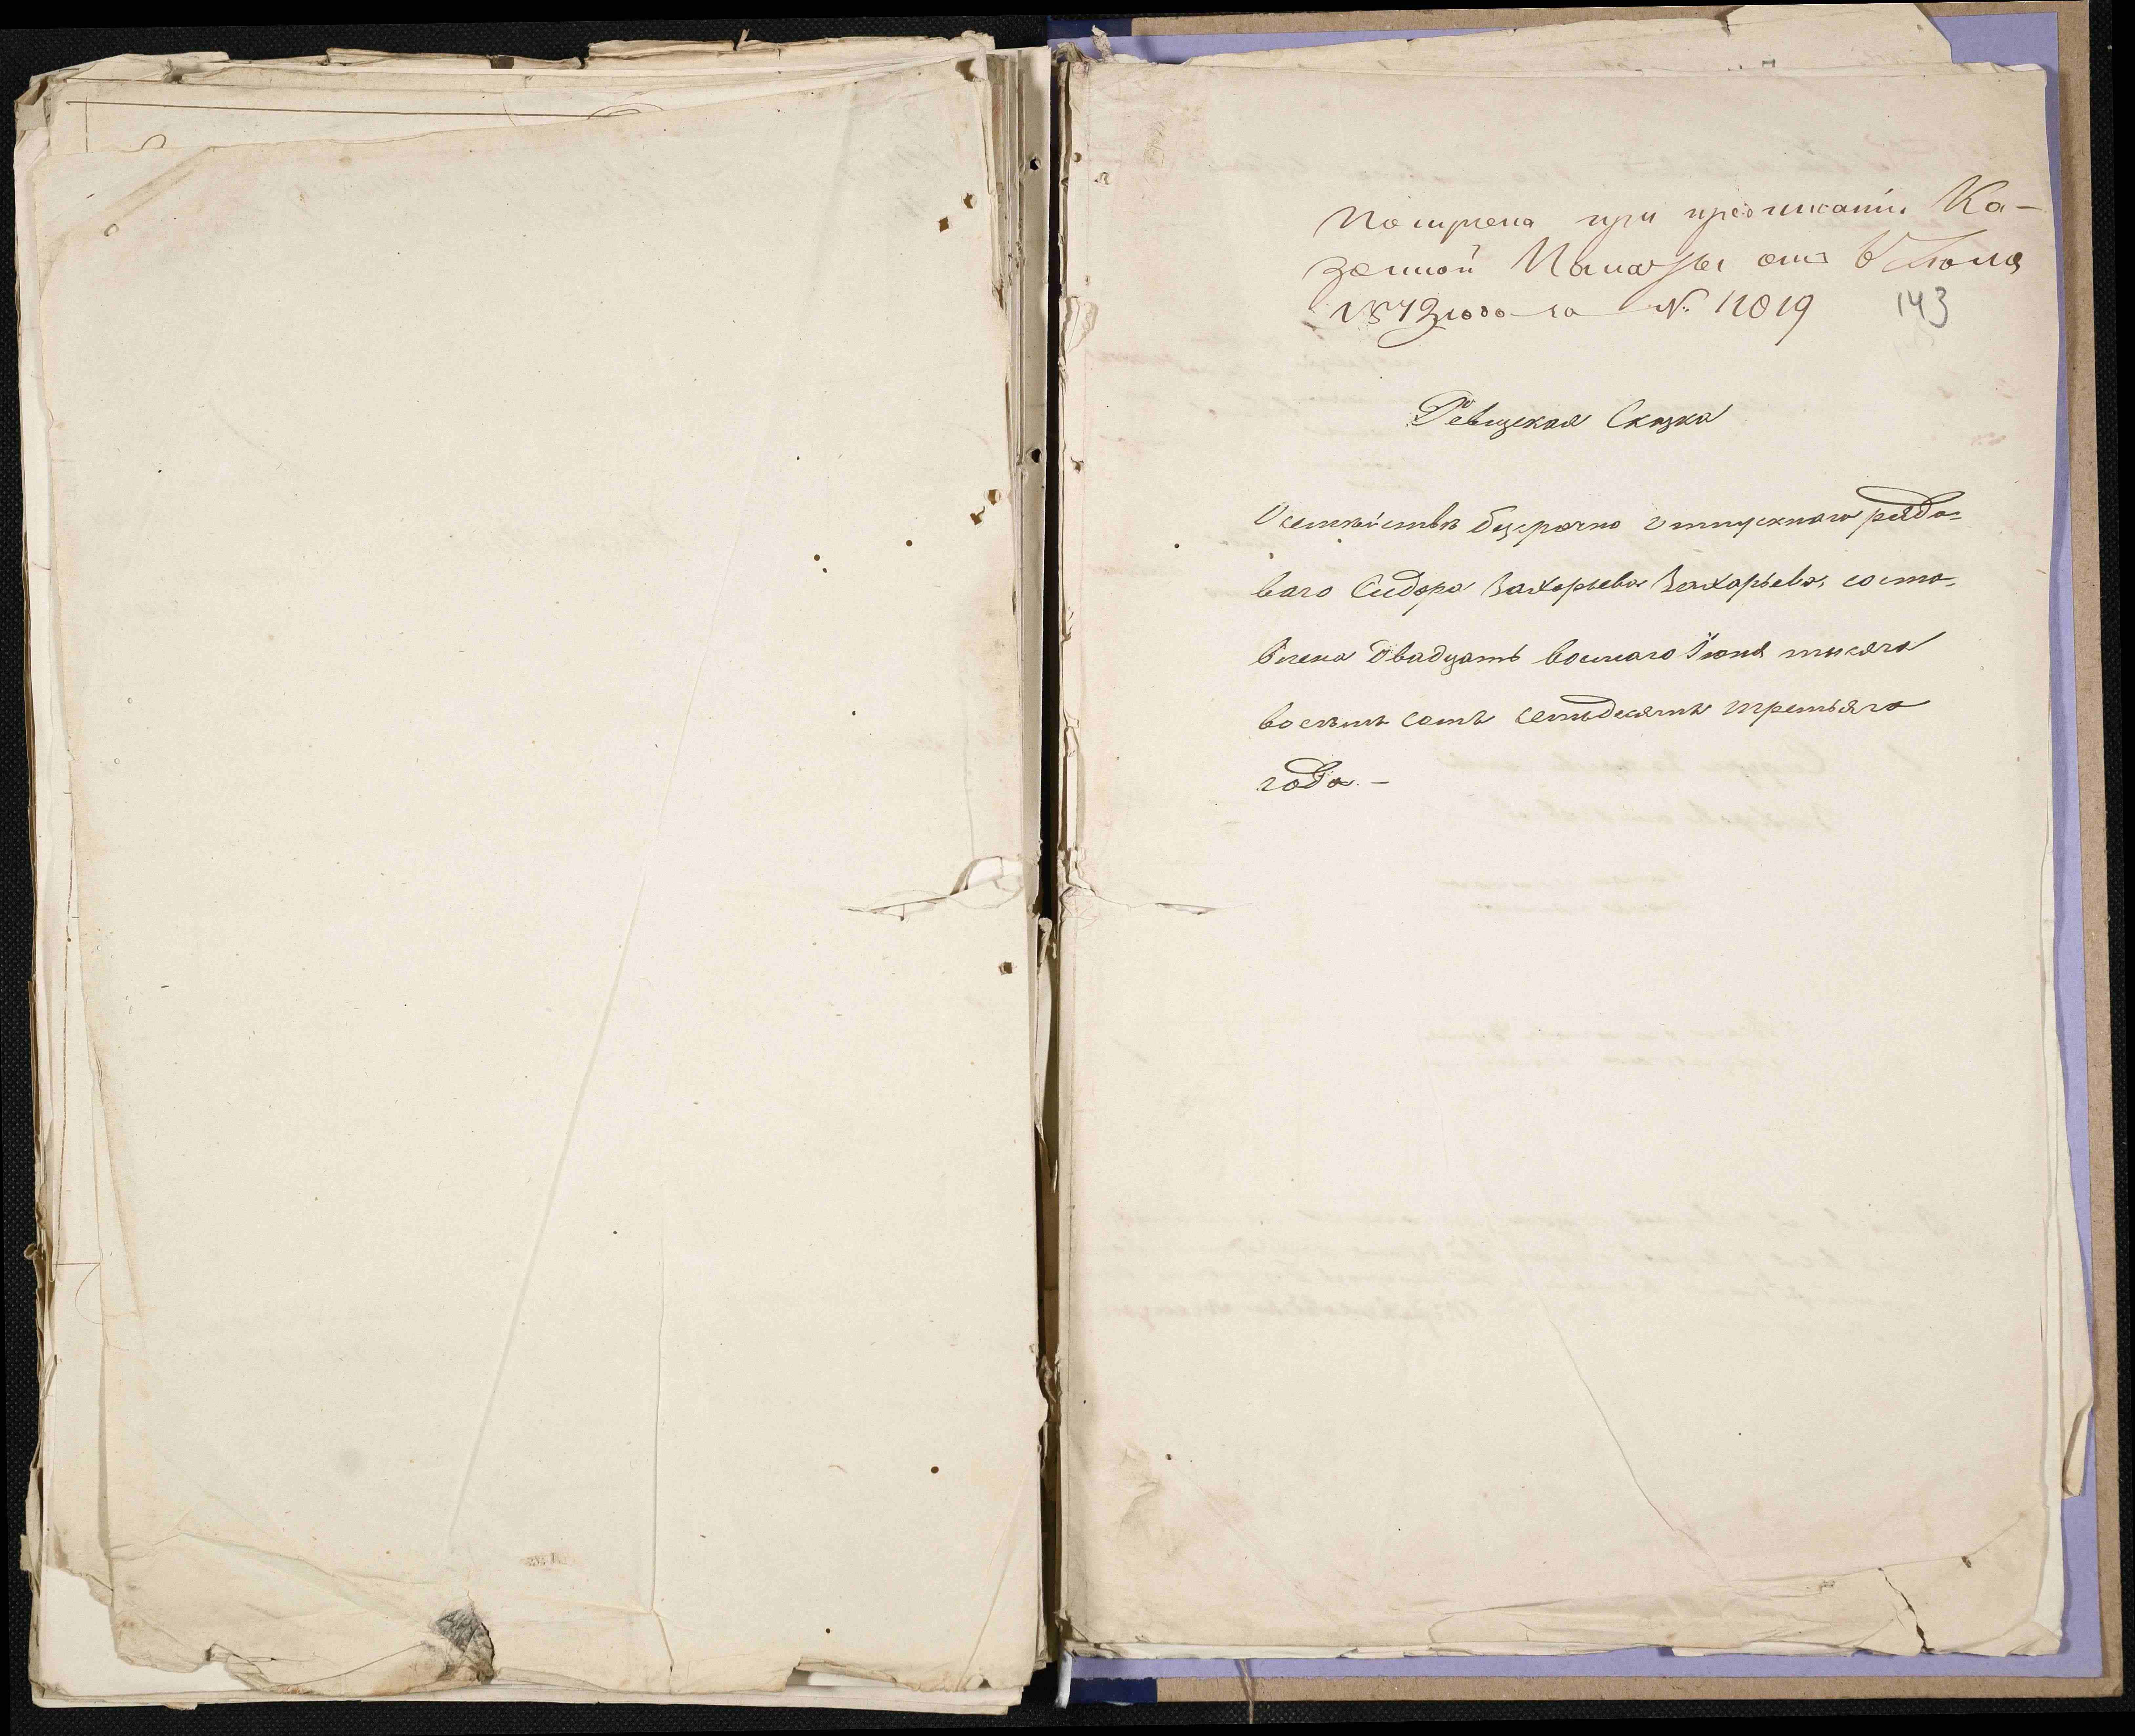 Получена при предписаніи Ка-
зенной Палаты отъ 6 Іюля
1873 года за № 11019
143
Ревизская Сказка
О семействѣ безсрочно отпускнаго рядо-
ваго Сидора Захарьева Захарьева, соста-
влена двадцать восьмаго Іюня тысяча
восемь сотъ семьдесятъ третьяго
года. –